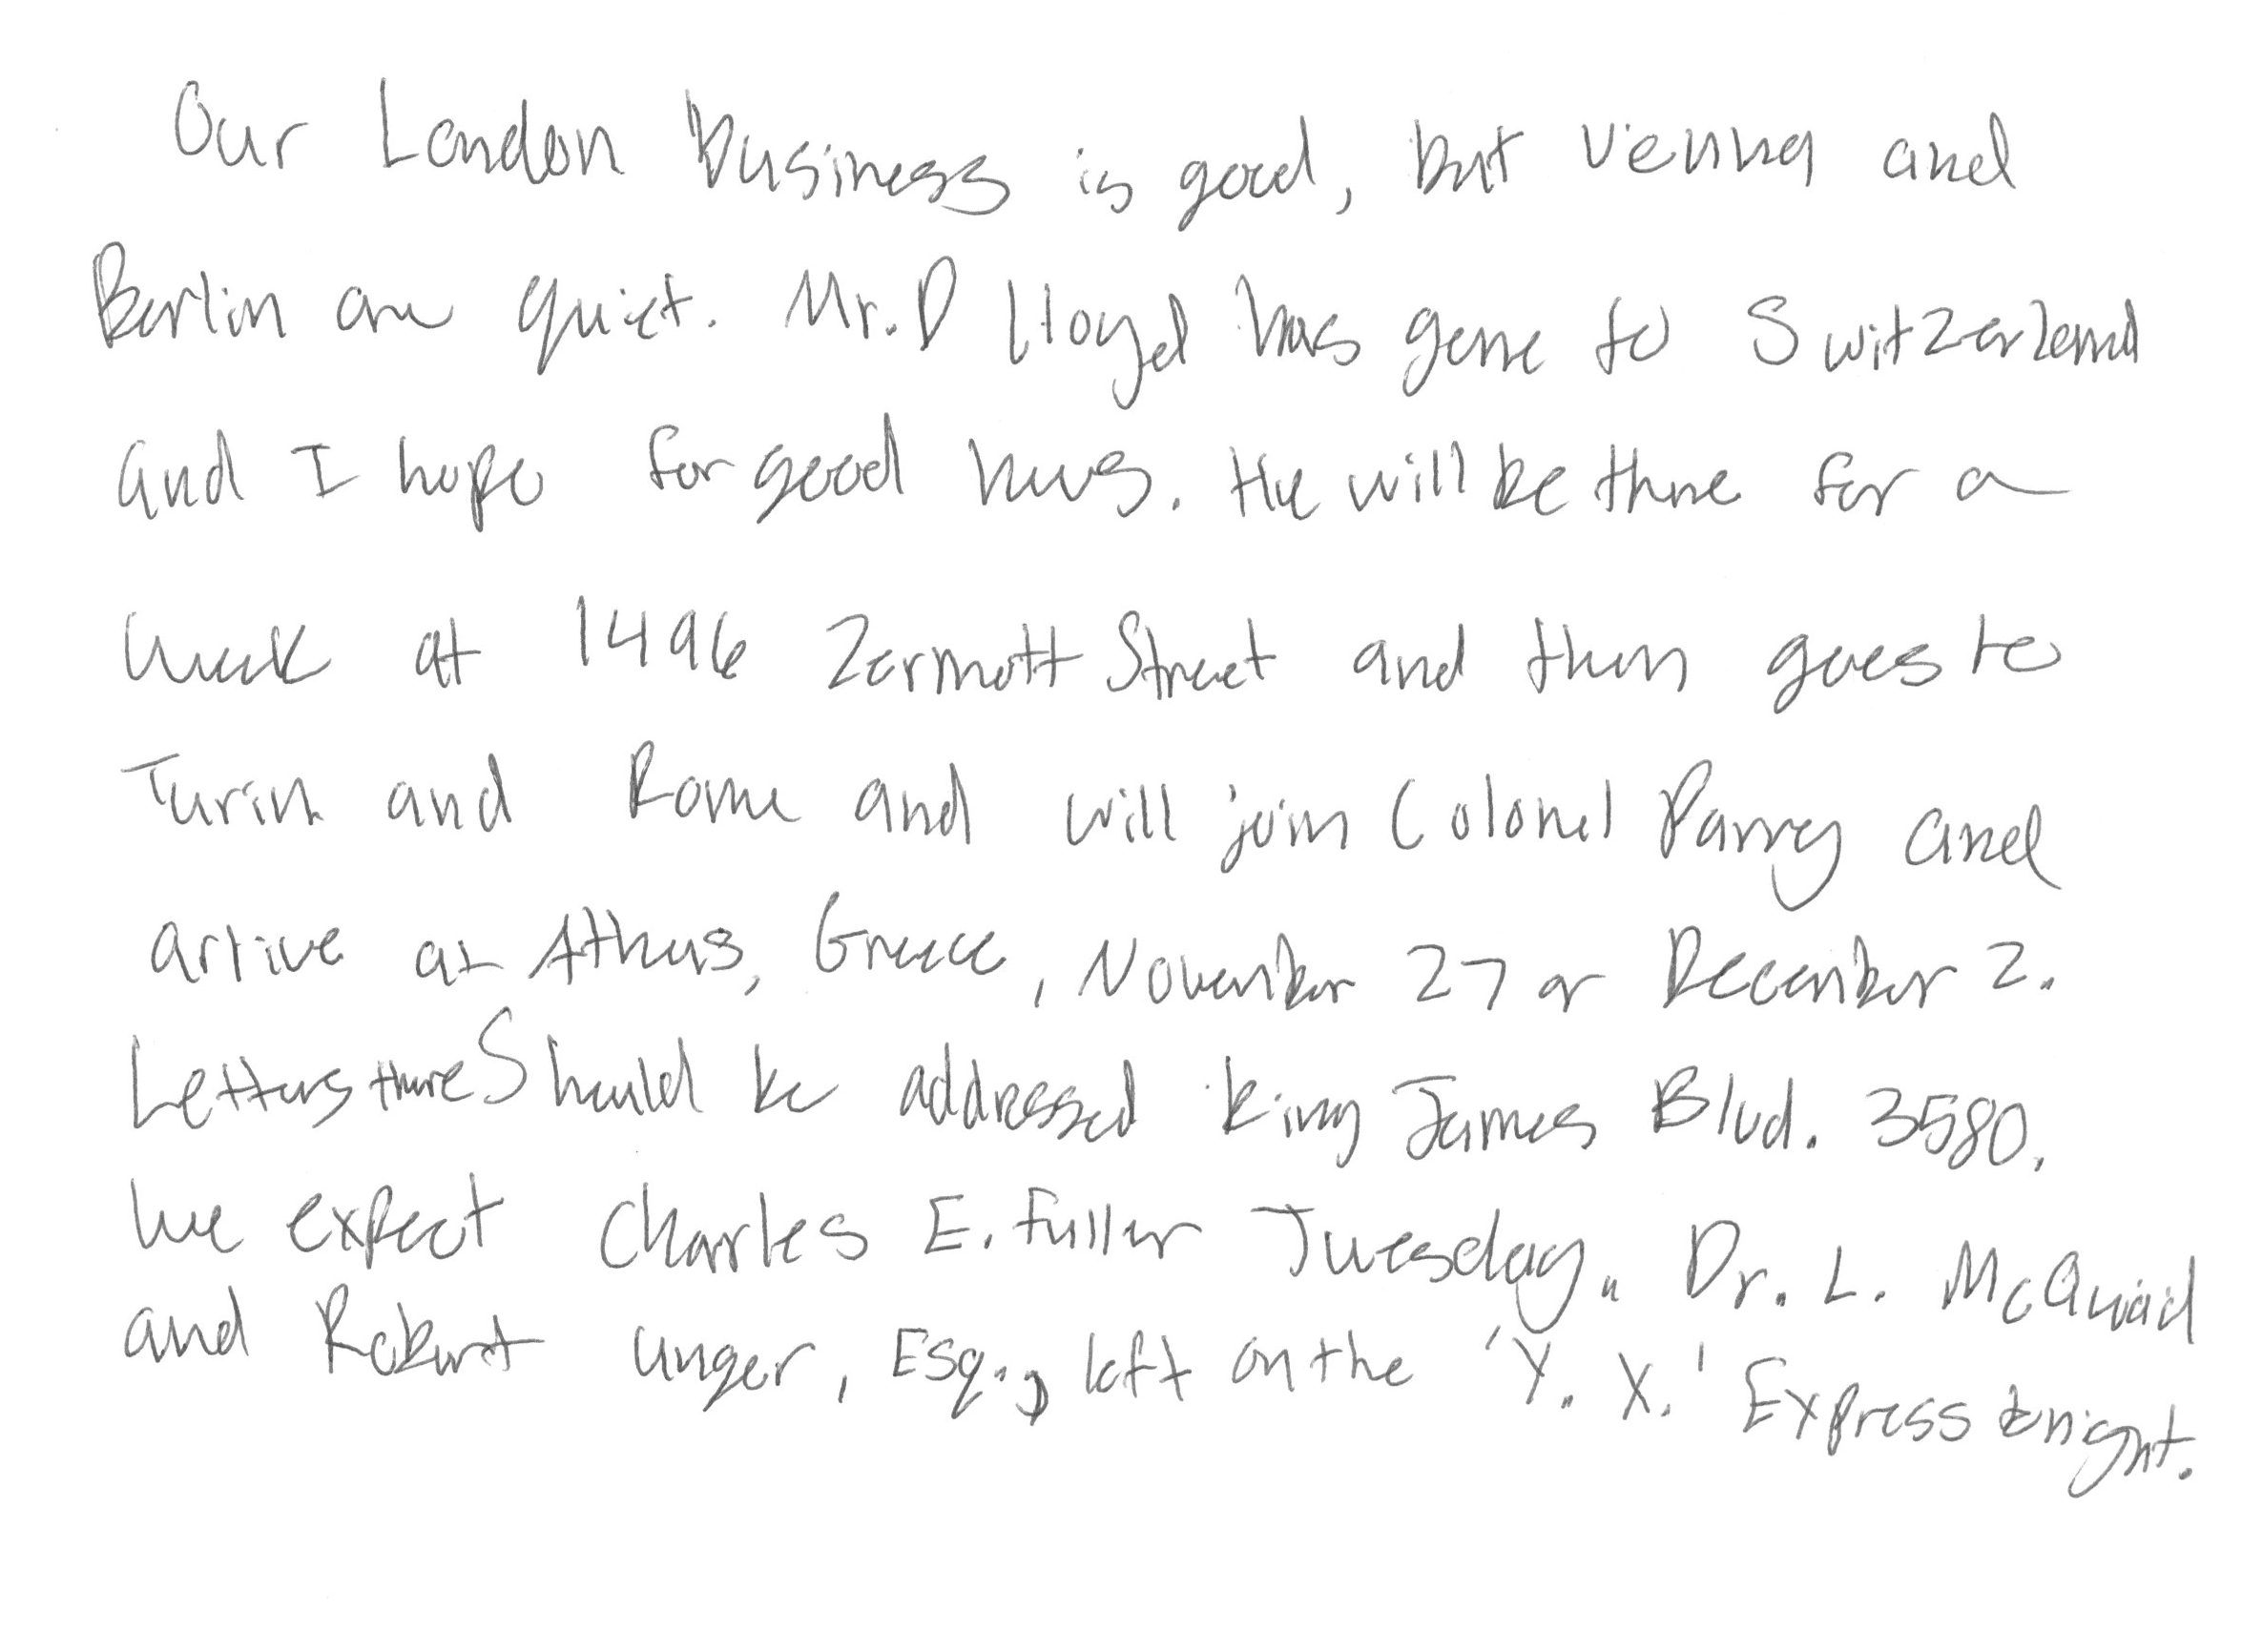 Our London business is good, but Vienna and
Berlin are quiet. Mr. D Lloyd has gone to Switzerland
and I hope for good news. He will be there for a
week at 1496 Zermott Street and then goes to
Turin and Rome and will join Colonel Parry and
arrive at Athens, Greece, November 27 or December 2.
Letters there Should be addressed King James Blvd. 3580.
We expect Charles E. Fuller Tuesday. Dr. L. McQuaid
and Robert Unger, Esq., left on the 'Y. X.' Express tonight.